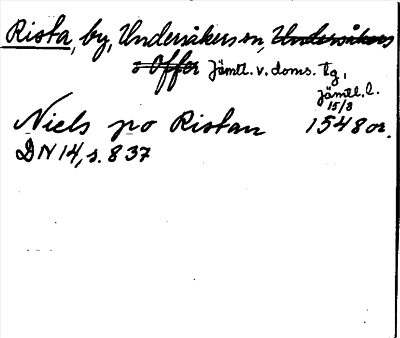 Rista, by, Undersåkers sn, Undersåkers
o Offer Jämtl. v. doms. tg,
Jämtl. l.
15/3
Niels po Ristan 1548 or.
DN 14, s. 837